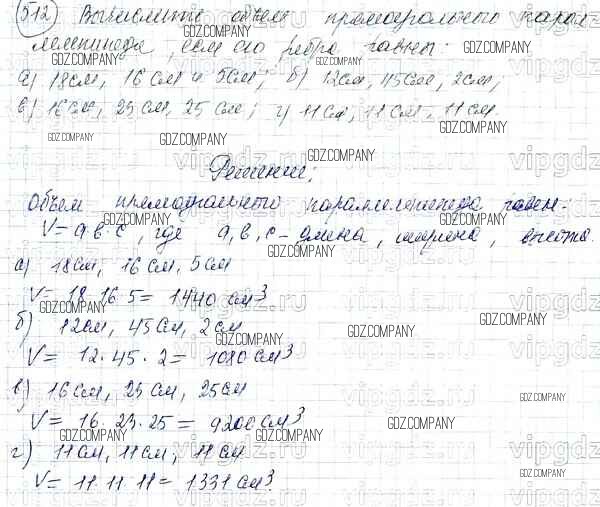 512 Вычислите объем прямоугольного парал
лелепипеда, если его ребра равны:
а) 18см, 16см и 5см; б) 12см, 45см, 2см;
в) 16см, 23см, 25см; г) 11см, 11см, 11см.
Решение:
Объем прямоугольного параллелепипеда равен:
V = a·b·c, где a, b, c - длина, ширина, высота.
а) 18см, 16см, 5см
V = 18·16·5 = 1440 см³
б) 12см, 45см, 2см
V = 12·45·2 = 1080 см³
в) 16см, 23см, 25см
V = 16·23·25 = 9200 см³
г) 11см, 11см, 11см
V = 11·11·11 = 1331 см³
GDZ.COMPANY
vipgdz.ru